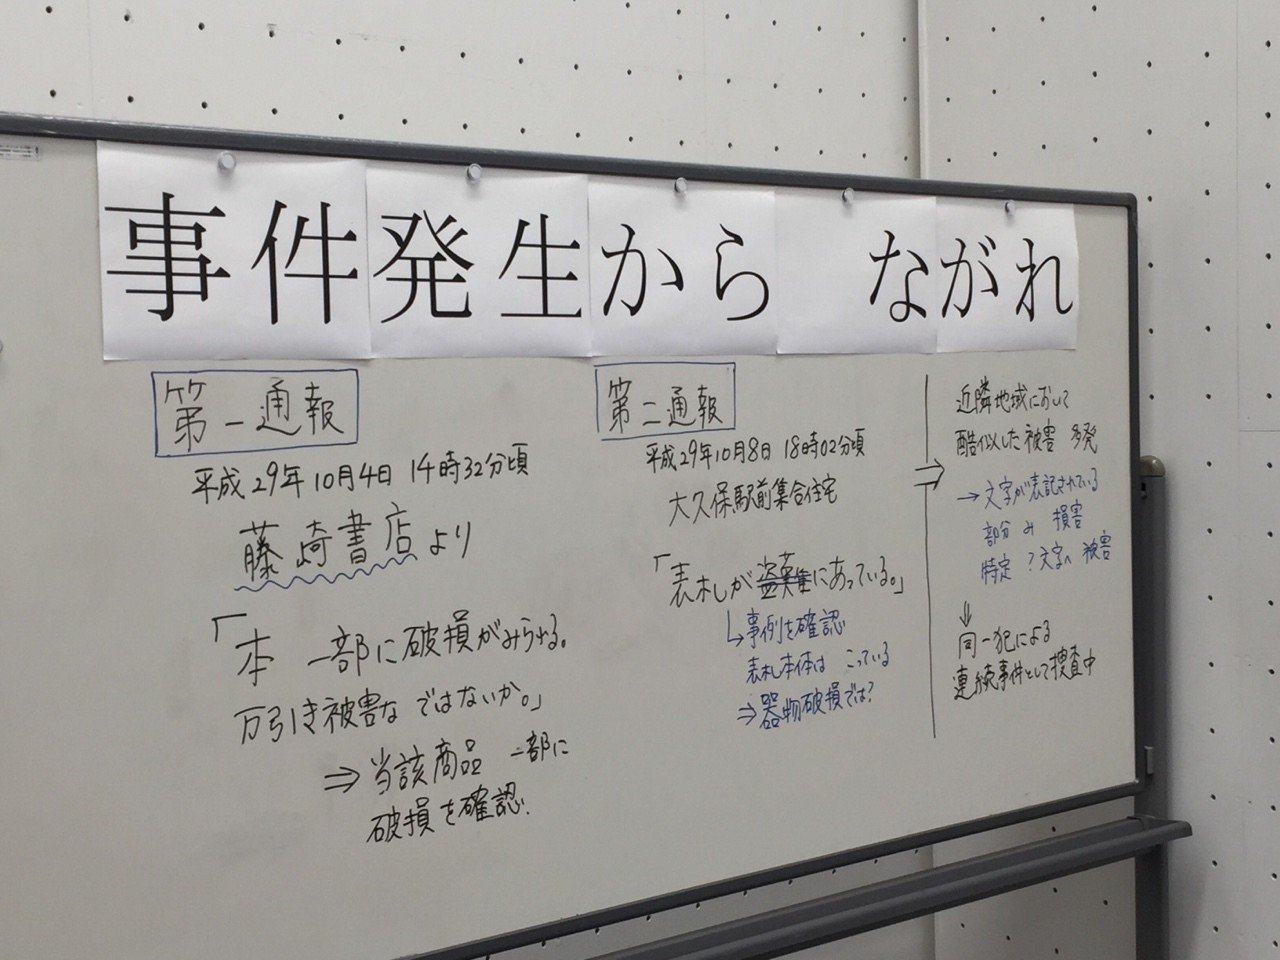 事件発生から ながれ
第一通報
平成29年10月4日 14時32分頃
藤崎書店より
「本 一部に破損がみられる。
万引き被害な ではないか。」
⇒当該商品 一部に
破損を確認.
第二通報
平成29年10月8日 18時02分頃
大久保駅前集合住宅
「表札が盗難にあっている。」
↳事例を確認
表札本体は こっている
⇒器物破損では?
⇒
近隣地域において
酷似した被害 多発
→文字が表記されている
部分 み 損害
特定 ?文字へ 被害
⇓
同一犯による
連続事件として捜査中